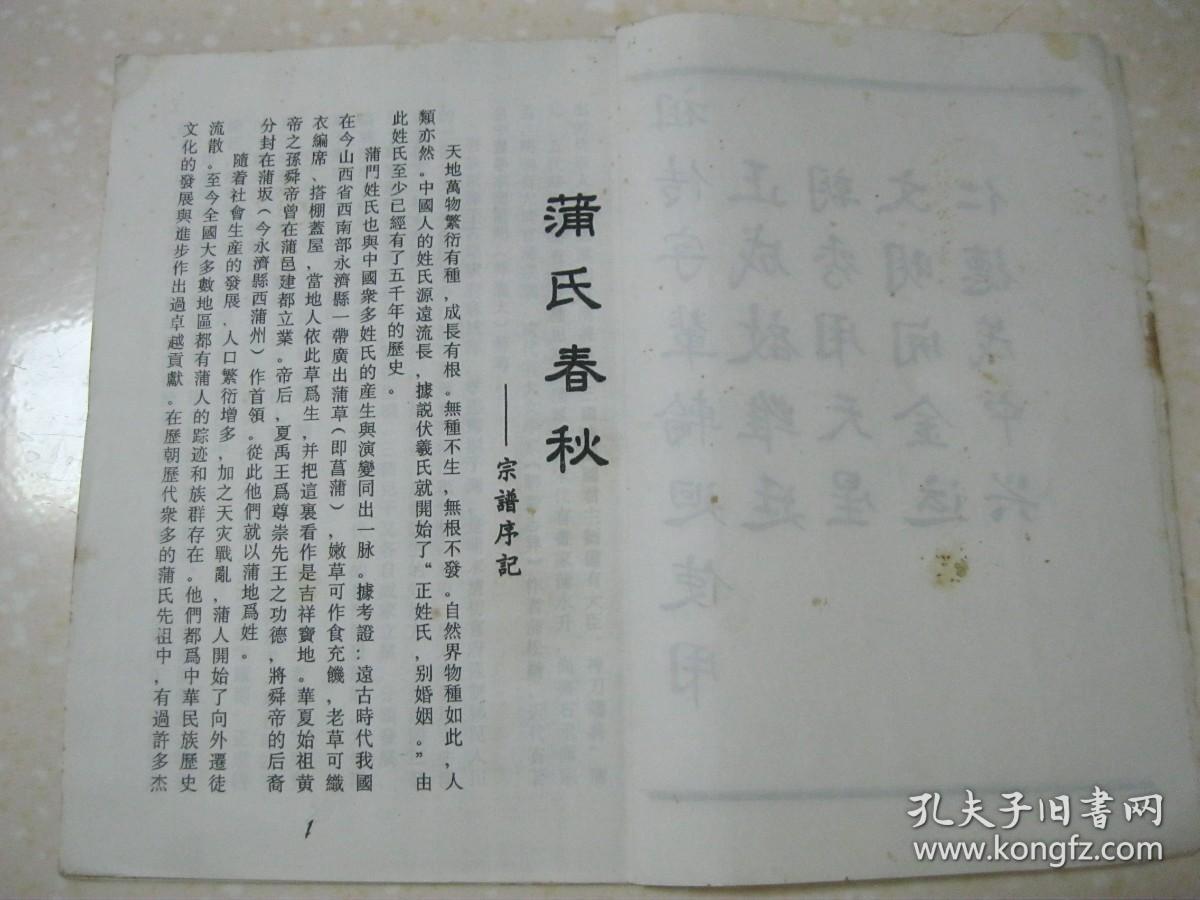 蒲氏春秋
——宗譜序記
天地萬物繁衍有種，成長有根。無種不生，無根不發。自然界物種如此，人
類亦然。中國人的姓氏源遠流長，據説伏羲氏就開始了“正姓氏，别婚姻。”由
此姓氏至少已經有了五千年的歷史。
蒲門姓氏也與中國衆多姓氏的産生與演變同出一脉。據考證：遠古時代我國
在今山西省西南部永濟縣一帶廣出蒲草（即菖蒲），嫩草可作食充饑，老草可織
衣編席、搭棚蓋屋，當地人依此草爲生，并把這裏看作是吉祥寶地。華夏始祖黄
帝之孫舜帝曾在蒲邑建都立業。帝后，夏禹王爲尊崇先王之功德，將舜帝的后裔
分封在蒲坂（今永濟縣西蒲州）作首領。從此他們就以蒲地爲姓。
隨着社會生産的發展、人口繁衍增多，加之天灾戰亂，蒲人開始了向外遷徒
流散。至今全國大多數地區都有蒲人的踪迹和族群存在。他們都爲中華民族歷史
文化的發展與進步作出過卓越貢獻。在歷朝歷代衆多的蒲氏先祖中，有過許多杰
1
孔夫子旧书网
www.kongfz.com